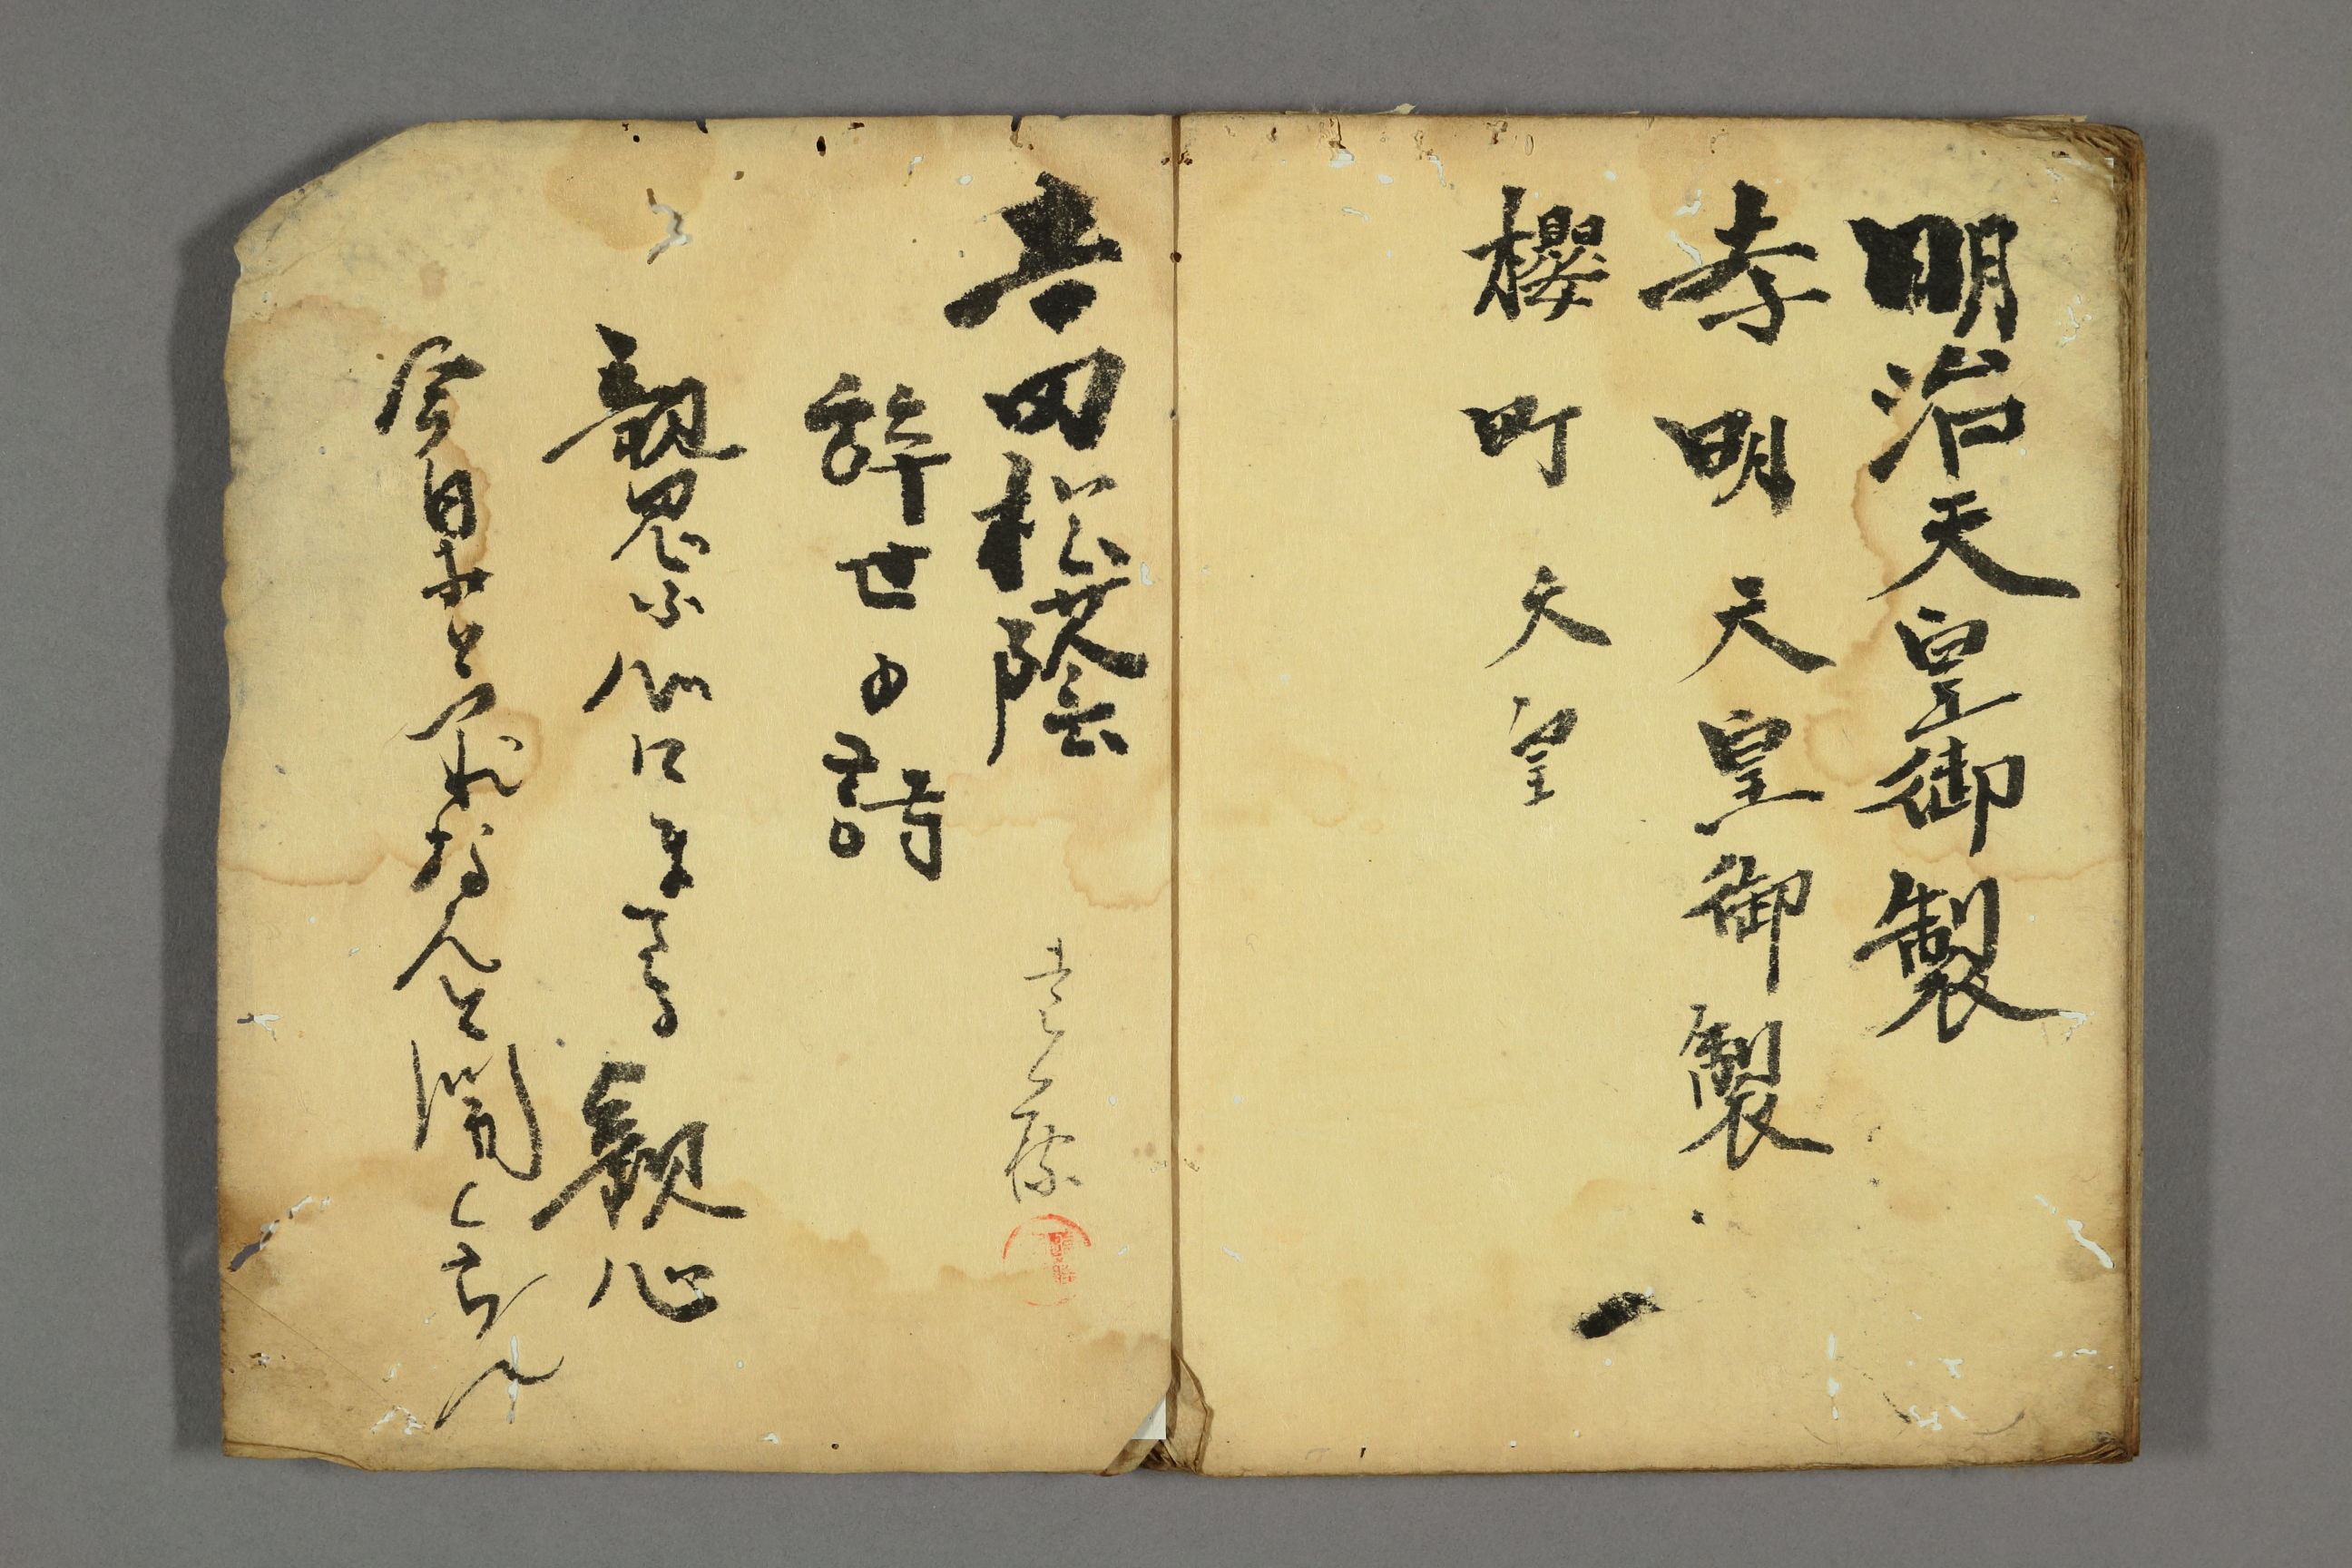 明治天皇御製
孝明天皇御製
櫻町天皇
吉田松蔭
辞世の詩
親思ふ心にまさる親心
今日のおとつれなんと聞くらん